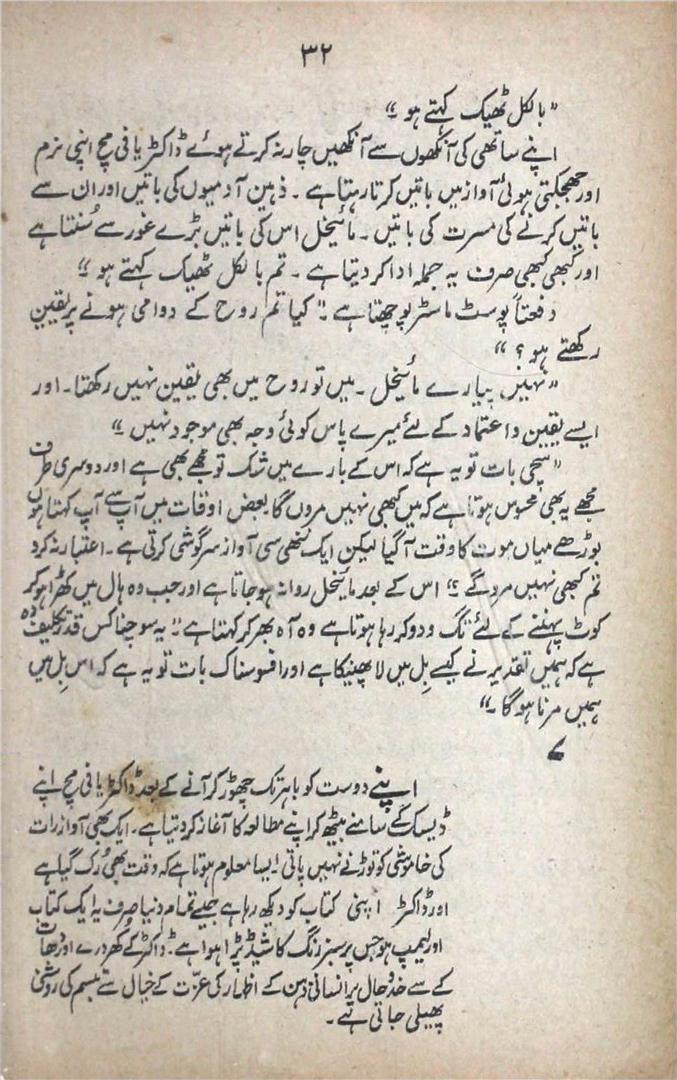 ۳۲
”بالکل ٹھیک کہتے ہو۔“
اپنے ساتھی کی آنکھوں سے آنکھیں چار نہ کرتے ہوئے ڈاکٹر یافی مچ اپنی نرم
اور جھجکتی ہوئی آواز میں باتیں کرتا رہتا ہے ۔ ذہین آدمیوں کی باتیں اور ان سے
باتیں کرنے کی مسرت کی باتیں ۔ مائیخل اس کی باتیں بڑے غور سے سُنتا ہے
اور کبھی کبھی صرف یہ جملہ ادا کر دیتا ہے ۔ تم بالکل ٹھیک کہتے ہو ۔“
دفعتاً پوسٹ ماسٹر پوچھتا ہے ۔” کیا تم روح کے دوامی ہونے پر یقین
رکھتے ہو ؟ “
”نہیں، پیارے مائیخل ۔ میں تو روح میں بھی یقین نہیں رکھتا ۔ اور
ایسے یقین و اعتماد کے لئے میرے پاس کوئی وجہ بھی موجود نہیں ۔“
”سچی بات تو یہ ہے کہ اس کے بارے میں شک تو مجھے بھی ہے اور دوسری طرف
مجھے یہ بھی محسوس ہوتا ہے کہ میں کبھی نہیں مروں گا بعض اوقات میں آپ سے آپ کہتا ہوں
بوڑھے میاں موت کا وقت آ گیا لیکن ایک ننھی سی آواز سرگوشی کرتی ہے ۔ اعتبار نہ کرو
تم کبھی نہیں مرو گے ۔“ اس کے بعد مائیخل روانہ ہو جاتا ہے اور جب وہ ہال میں کھڑا ہو کر
کوٹ پہننے کے لئے تگ و دو کر رہا ہوتا ہے وہ آہ بھر کر کہتا ہے ۔” یہ سوچنا کس قدر تکلیف دہ
ہے کہ ہمیں تقدیر نے کیسے بِل میں لا پھینکا ہے اور افسوسناک بات تو یہ ہے کہ اس بِل میں
ہمیں مرنا ہو گا ۔“
اپنے دوست کو باہر تک چھوڑ کر آنے کے بعد ڈاکٹر یافی مچ اپنے
ڈیسک کے سامنے بیٹھ کر اپنے مطالعہ کا آغاز کر دیتا ہے ۔ ایک بھی آواز رات
کی خاموشی کو توڑنے نہیں پاتی ایسا معلوم ہوتا ہے کہ وقت بھی رُک گیا ہے
اور ڈاکٹر اپنی کتاب کو دیکھ رہا ہے جیسے تمام دنیا صرف یہ ایک کتاب
اور لیمپ ہو جس پر سبز رنگ کا شیڈ پڑا ہوا ہے ۔ ڈاکٹر کے کھردرے اور دہقان
کے سے خدوخال پر انسانی ذہن کے اظہار کی عزّت کے خیال سے تبسم کی روشنی
پھیلی جاتی ہے ۔